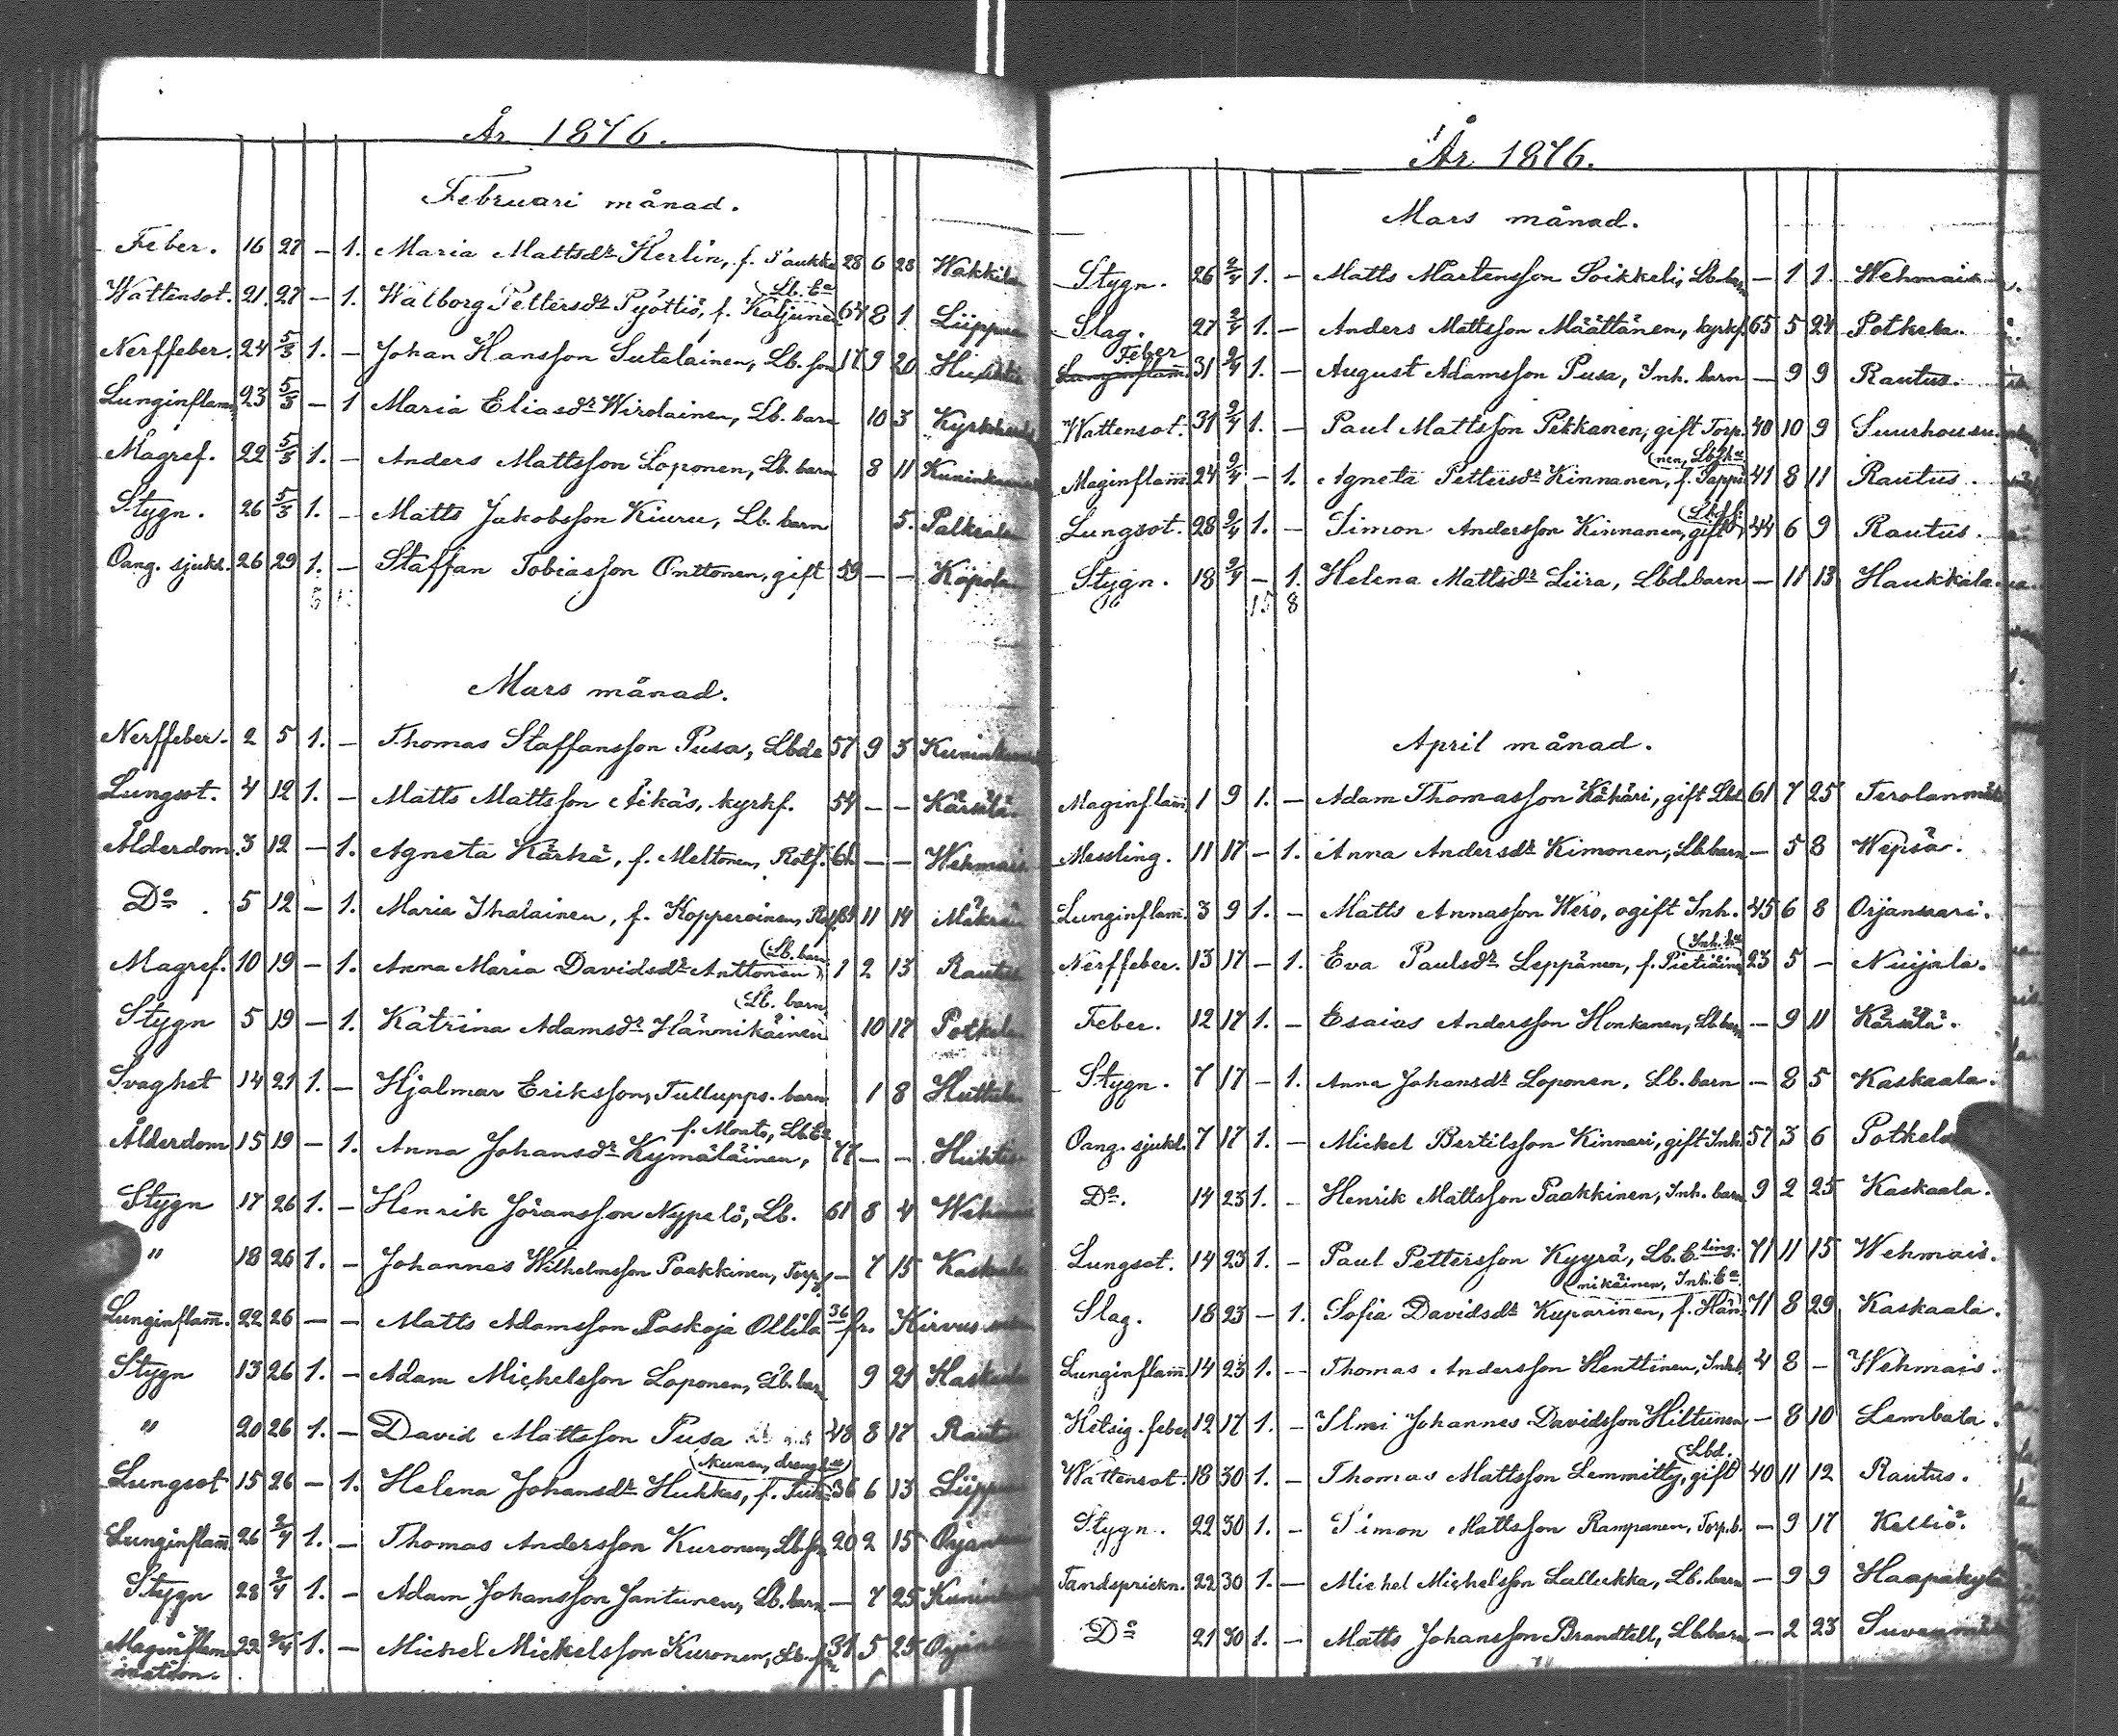 År 1876.
Februari månad.
Feber. 16 27 – 1. Maria Mattsdr Herlin, f. Paukku 28 6 28 Wakkila
(Lb. Ea
Wattensot. 21. 27 – 1. Walborg Pettersdr Pyöttiö, f. Katjunen 64 8 1 Liippua
Nerffeber. 24 5/3 1. – Johan Hansson Sutelainen, Lb. son 17 9 20 Huhtis
Lunginflam. 23 5/3 – 1 Maria Eliasdr Wirolainen, Lb. barn 10 3
Magref. 22 5/3 1. – Anders Mattsson Loponen, Lb. barn 8 11
Stygn. 26 5/3 1. – Matts Jakobsson Kiuru, Lb. barn 5. Palkeala
Oang. sjukd. 26 29 1. – Staffan Tobiasson Onttonen, gift 59 – – Käpola
5
Mars månad.
Nerffeber. 2 5 1. – Thomas Staffansson Pusa, Lbde 57 9 5
Lungsot. 4 12 1. – Matts Mattsson Äikäs, kyrkf. 54 – – Kärsälä.
Ålderdom. 3 12 – 1. Agneta Kärhä, f. Meltonen, Rotf. – – Wehmais
Do. 5 12 – 1. Maria Ihalainen, f. Kopperoinen, 11 14 Mäkrä
(Lb. barn
Magref. 10 19 – 1. Anna Maria Davidsdr Anttonen 1 2 13 Rautus
(Lb. barn
Stygn 5 19 – 1. Katrina Adamsdr Hännikäinen 10 17 Potkela
Svaghet 14 21 1. – Hjalmar Eriksson, Tullupps. barn 1 8 Huttula
f. Monto, Lb. Ea
Ålderdom 15 19 – 1. Anna Johansdr Kymäläinen, 77 – – Huhtis
Stygn 17 26 1. – Henrik Jöransson Nypelö, Lb. 61 8 4 Wehmais
" 18 26 1. – Johannes Wilhelmsson Paakkinen, Torp. – 7 15 Kaskaala
Lunginflam. 22 26 – – Matts Adamsson Paskoja Ollila 36 fr. Kirvus
Stygn 13 26 1. – Adam Michelsson Loponen, Lb. barn 9 21 Kaskaala
" 20 26 1. – David Mattsson Pusa 48 8 17 Rautus
Lungsot 15 26 – 1. Helena Johansdr Huhkas, f. 36 6 13 Liippua
Lunginflam. 26 2/4 1. – Thomas Andersson Kuronen, Lb. son 20 2 15 Orjansaari
Stygn 28 2/4 1. – Adam Johansson Jantunen, Lb. barn – 7 25
Maginflam- 22 2/4 1. – Michel Mickelsson Kuronen, Lb. son 31 5 25
mation.
År 1876.
Mars månad.
Stygn. 26 2/4 1. – Matts Mårtensson Soikkeli, Lb. barn – 1 1. Wehmais
Slag. 27 2/4 1. – Anders Mattsson Määttänen, kyrkf. 65 5 24 Potkela.
Feber
Lunginflam. 31 9/4 1. – August Adamsson Pusa, Inh. barn – 9 9 Rautus.
Wattensot. 31 9/4 1. – Paul Mattsson Pekkanen, gift Torp. 40 10 9
(nen, Lbska
Maginflam. 24 9/4 – 1. Agneta Pettersdr Kinnanen, f. Pappi 41 8 11 Rautus.
(Lbd.
Lungsot. 28 9/4 1. – Simon Andersson Kinnanen, gift 44 6 9 Rautus.
Stygn. 18 9/4 – 1. Helena Mattsdr Liira, Lbd. barn – 11 13 Haukkala
16 15 8
April månad.
Maginflam. 1 9 1. – Adam Thomasson Kähäri, gift Lbd. 61 7 25
Messling. 11 17 – 1. Anna Andersdr Kimonen, Lb. barn – 5 8 Wepsä.
Lunginflam. 3 9 1. – Matts Annasson Wero, ogift Inh. 45 6 8 Orjansaari.
(Inh. ha
Nerffeber. 13 17 – 1. Eva Paulsdr Leppänen, f. Pietiäinen 23 5 – Nuijala.
Feber. 12 17 1. – Esaias Andersson Honkanen, Lb. barn – 9 11 Kärsälä.
Stygn. 7 17 – 1. Anna Johansdr Loponen, Lb. barn – 8 5 Kaskaala.
Oang. sjukd. 7 17 1. – Mickel Bertilsson Kinnari, gift Inh. 57 3 6 Potkela
Do. 14 23 1. – Henrik Mattsson Paakkinen, Inh. barn 9 2 25 Kaskaala.
Lungsot. 14 23 1. – Paul Pettersson Kyyrä, Lb. E.ling. 71 11 15 Wehmais.
(nikäinen, Inh. Ea
Slag. 18 23 – 1. Sofia Davidsdr Kuparinen, f. Hän- 71 8 29 Kaskaala.
Lunginflam. 14 23 1. – Thomas Andersson Henttinen, Inh. b. 4 8 – Wehmais.
Hetsig feber 12 17 1. – Ilmi Johannes Davidsson Hiltunen – 8 10 Lembala.
(Lbd.
Wattensot. 18 30 1. – Thomas Mattsson Lemmitty, gift 40 11 12 Rautus.
Stygn. 22 30 1. – Simon Mattsson Rampanen, Torp. b. – 9 17 Kelliö.
Tandsprickn. 22 30 1. – Michel Michelsson Lallukka, Lb. barn – 9 9 Haapakylä
Do 21 30 1. – Matts Johansson Brandtell, Lb. barn – 2 23